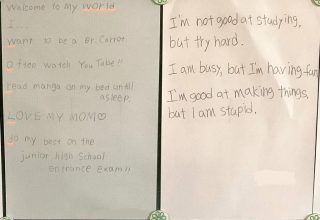 Welcome to My world
I...
want to be a Br. Carrot
often watch YouTube!!
read manga on my bed until
asleep.
LOVE MY MOM♡
do my best on the
junior high School
entrance exam!!
I'm not good at studying,
but try hard.
I am busy, but I'm having fun
I'm good at making things,
but I am stupid.